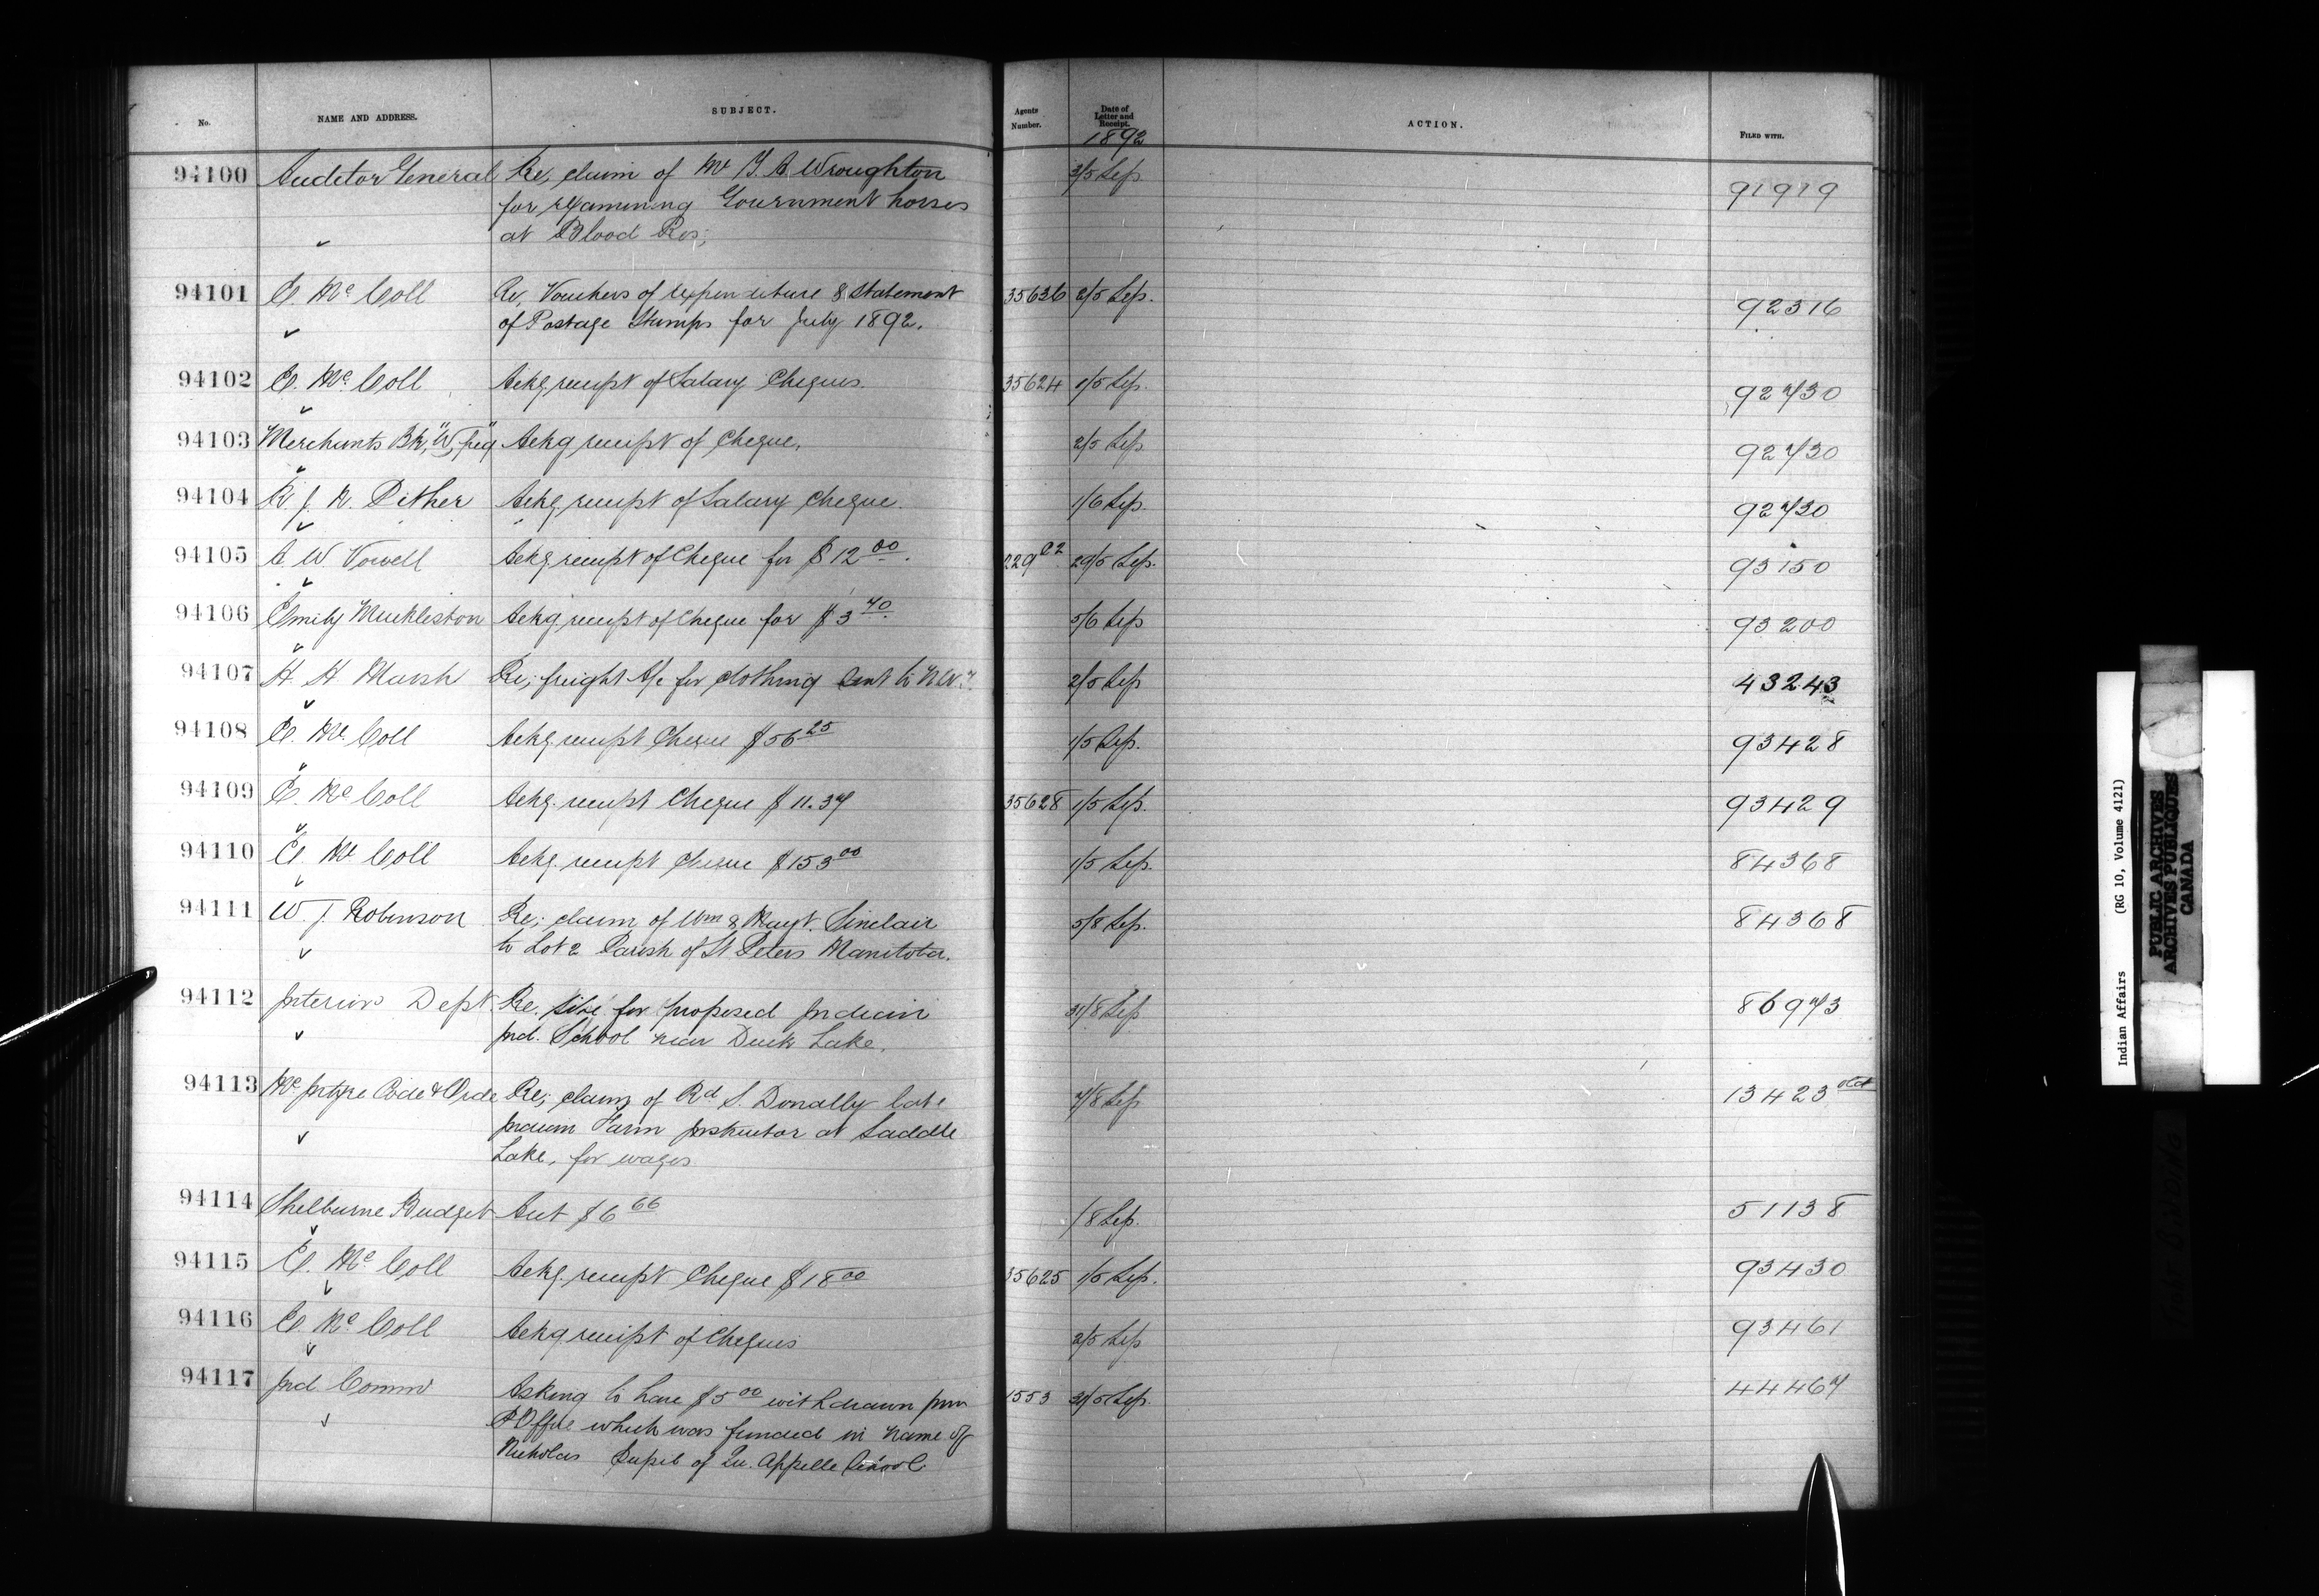 No. NAME AND ADDRESS. SUBJECT. Agents Number. Date of Letter and Receipt. ACTION. FILED WITH.
1892
94100 Auditor General Re; claim of Mr T. A. Wroughton 3/5 Sep. 91919
for examining Government horses
at Blood Res;
94101 E. McColl Re, Vouchers of expenditure & statement 35626 2/5 Sep. 92316
of Postage Stamps for July 1892.
94102 E. McColl Ackg receipt of Salary Cheques. 35624 1/5 Sep. 92730
94103 Merchants Bk, "W, peg" Ackg receipt of Cheque. 2/5 Sep 92730
94104 R. J. N. Pither Ackg receipt of Salary cheque. 1/6 Sep. 92730
94105 A. W. Vowell Ackg receipt of Cheque for $12 00. 229 29/5 Sep. 93150
94106 Emily Muckleston Ackg receipt of Cheque for $3 40. 5/6 Sep 93200
94107 H. H. Marsh Re; freight A/c for clothing sent to N.W.T. 2/5 Sep 43243
94108 E. McColl Ackg. receipt Cheque $56 25 1/5 Sep. 93428
94109 E. McColl Ackg. receipt Cheque $11.37 35628 1/5 Sep. 93429
94110 E. McColl Ackg. receipt cheque $153 00 1/5 Sep. 84368
94111 W. J. Robinson Re; claim of Wm & Magt. Sinclair 5/8 Sep. 84368
to Lot 2 Parish of St. Peters Manitoba.
94112 Interior Dept Re. site for proposed Indian 31/8 Sep 86973
Ind. School near Duck Lake.
94113 McIntyre Code & Orde Re; claim of Rd S. Donally late 7/8 Sep 13423 old
Indian Farm Instructor at Saddle
Lake, for wages
94114 Shelburne Budget Acct $6 66 /8 Sep. 51138
94115 E. McColl Ackg. receipt Cheque $18 00 35625 1/5 Sep. 93430
94116 E. McColl Ackg receipt of Cheques 2/5 Sep 93461
94117 Ind. Commr Asking to have $5 00 withdrawn from 1553 31/5 Sep. 44467
P. Office which was funded in name of
Nicholas Pupil of Qu. Appelle School.
Indian Affairs (RG 10, Volume 4121)
PUBLIC ARCHIVES
ARCHIVES PUBLIQUES
CANADA